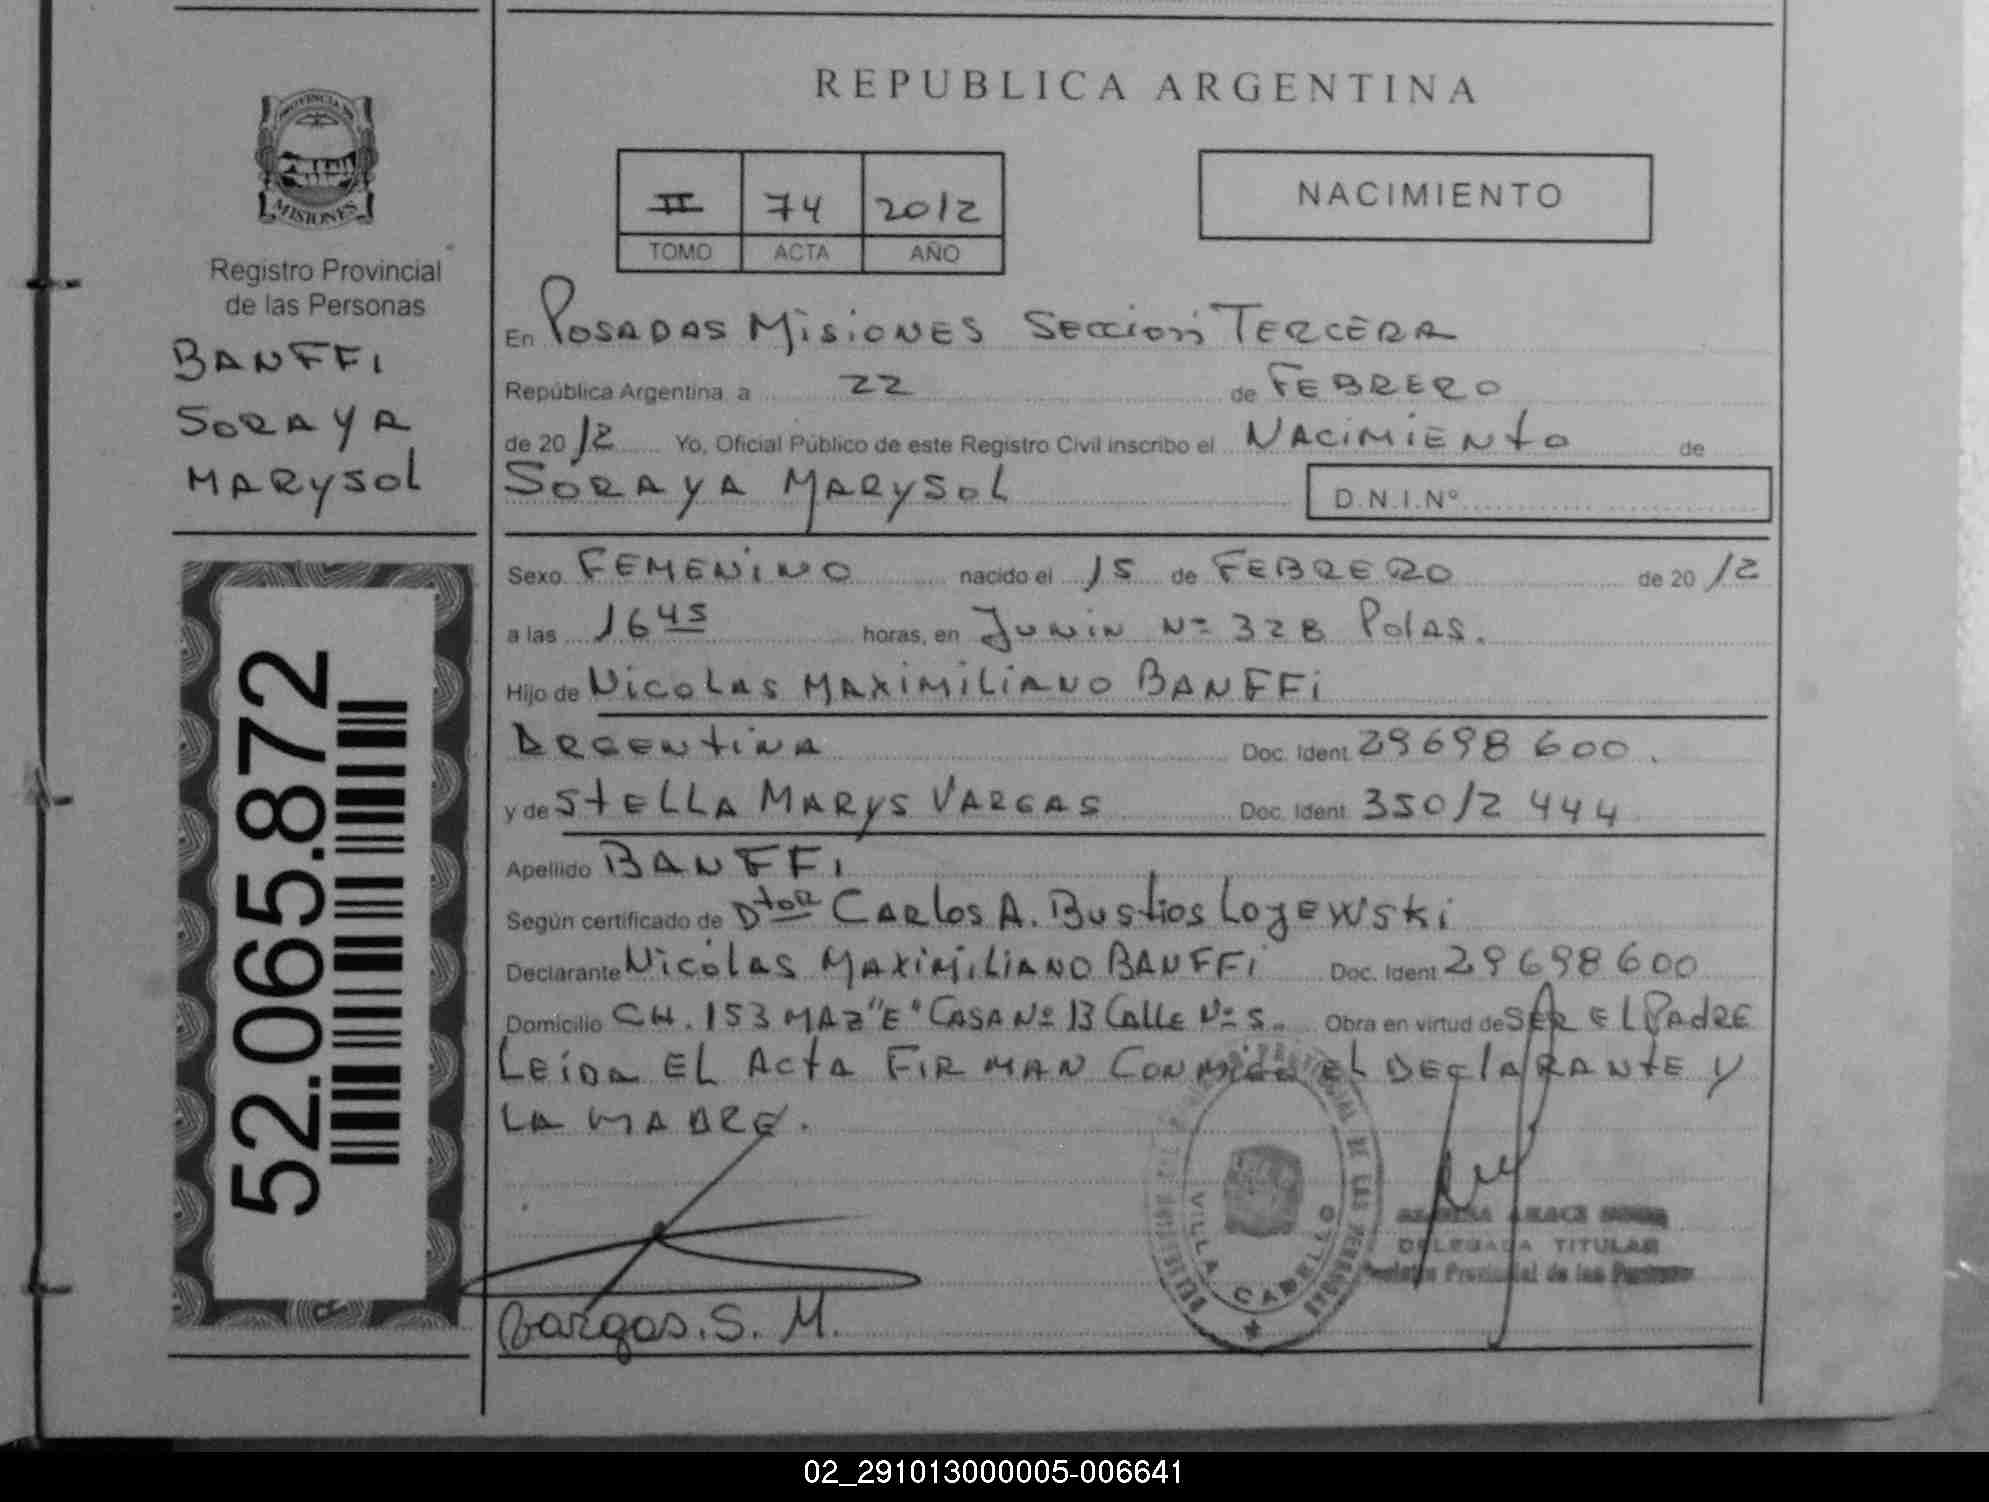 REPUBLICA ARGENTINA
PROVINCIA DE
MISIONES
Registro Provincial
de las Personas
BANFFI
SORAYA
MARYSOL
52.065.872
II 74 2012
TOMO ACTA AÑO
NACIMIENTO
En POSADAS MISIONES SECCION TERCERA
República Argentina a 22 de FEBRERO
de 2012 Yo, Oficial Público de este Registro Civil inscribo el NACIMIENTO de
SORAYA MARYSOL D.N.I.Nº
Sexo FEMENINO nacido el 15 de FEBRERO de 2012
a las 16 45 horas, en JUNIN Nº 328 Pdas.
Hijo de NICOLAS MAXIMILIANO BANFFI
ARGENTINA Doc. Ident. 29698600.
y de STELLA MARYS VARGAS Doc. Ident. 35012444
Apellido BANFFI
Según certificado de Dtor CARLOS A. BUSTIOS LOYEWSKI
Declarante NICOLAS MAXIMILIANO BANFFI Doc. Ident. 29698600
Domicilio CH. 153 MAZ "E" CASA Nº 13 CALLE Nº 5. Obra en virtud de SER EL PADRE
LEIDA EL ACTA FIRMAN CONMIGO EL DECLARANTE Y
LA MADRE.
VILLA CABELLO
DELEGADA TITULAR
Registro Provincial de las Personas
Vargas. S. M.
02_291013000005-006641